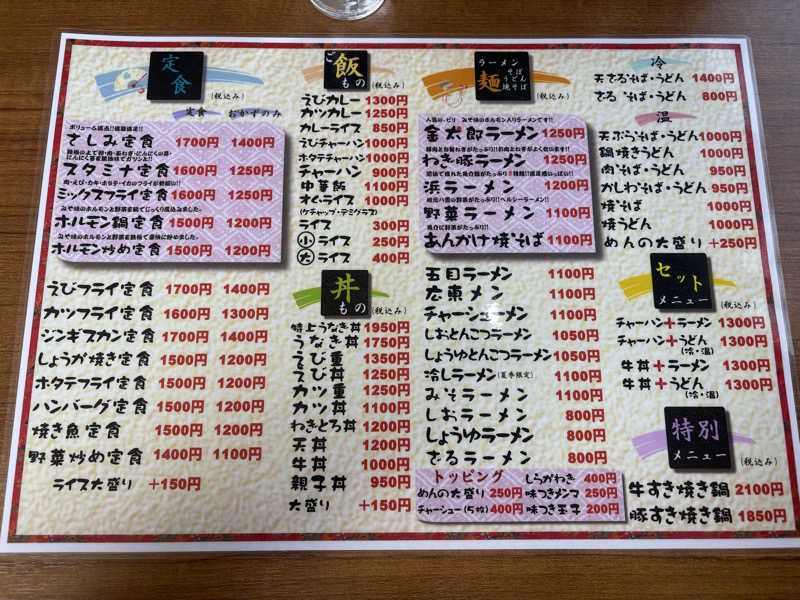 定食
(税込み)
定食 おかずのみ
ボリューム満点!!健康満足!!
さしみ定食 1700円 1400円
スタミナ定食 1600円 1250円
ミックスフライ定食 1600円 1250円
みそ味のホルモンと野菜を鍋でじっくり煮込みました。
ホルモン鍋定食 1500円 1200円
みそ味のホルモンと野菜を鉄板で豪快に炒めました。
ホルモン炒め定食 1500円 1200円
えびフライ定食 1700円 1400円
カツフライ定食 1600円 1300円
ジンギスカン定食 1700円 1400円
しょうが焼き定食 1500円 1200円
ホタテフライ定食 1500円 1200円
ハンバーグ定食 1500円 1200円
焼き魚定食 1500円 1200円
野菜炒め定食 1400円 1100円
ライス大盛り +150円
ご飯もの
(税込み)
えびカレー 1300円
カツカレー 1250円
カレーライス 850円
えびチャーハン 1000円
ホタテチャーハン 1000円
チャーハン 900円
中華飯 1100円
オムライス 1000円
(ケチャップ・デミグラス)
ライス 300円
小ライス 250円
大ライス 400円
丼もの
(税込み)
特上うなぎ丼 1950円
うなぎ丼 1750円
えび重 1350円
えび丼 1250円
カツ重 1250円
カツ丼 1100円
わきとろ丼 1200円
天丼 1200円
牛丼 1000円
親子丼 950円
大盛り +150円
ラーメン
麺 そば うどん 焼そば
(税込み)
人気の・ピリ みそ味のホルモン入りラーメンです!!
金太郎ラーメン 1250円
わき豚ラーメン 1250円
浜ラーメン 1200円
野菜ラーメン 1100円
魚介に野菜がたっぷり!!
あんかけ焼そば 1100円
五目ラーメン 1100円
広東メン 1100円
チャーシューメン 1100円
しおとんこつラーメン 1050円
しょうゆとんこつラーメン 1050円
冷しラーメン(夏季限定) 1100円
みそラーメン 1100円
しおラーメン 800円
しょうゆラーメン 800円
ざるラーメン 800円
トッピング
しらがわき 400円
めんの大盛り 250円
味つきメンマ 250円
チャーシュー(5枚) 400円
味つき玉子 200円
冷
天ざるそば・うどん 1400円
ざるそば・うどん 800円
温
天ぷらそば・うどん 1000円
鍋焼きうどん 1000円
肉そば・うどん 950円
かしわそば・うどん 950円
焼そば 1000円
焼うどん 1000円
めんの大盛り +250円
セットメニュー
(税込み)
チャーハン+ラーメン 1300円
チャーハン+うどん 1300円
(冷・温)
牛丼+ラーメン 1300円
牛丼+うどん 1300円
(冷・温)
特別メニュー
(税込み)
牛すき焼き鍋 2100円
豚すき焼き鍋 1850円